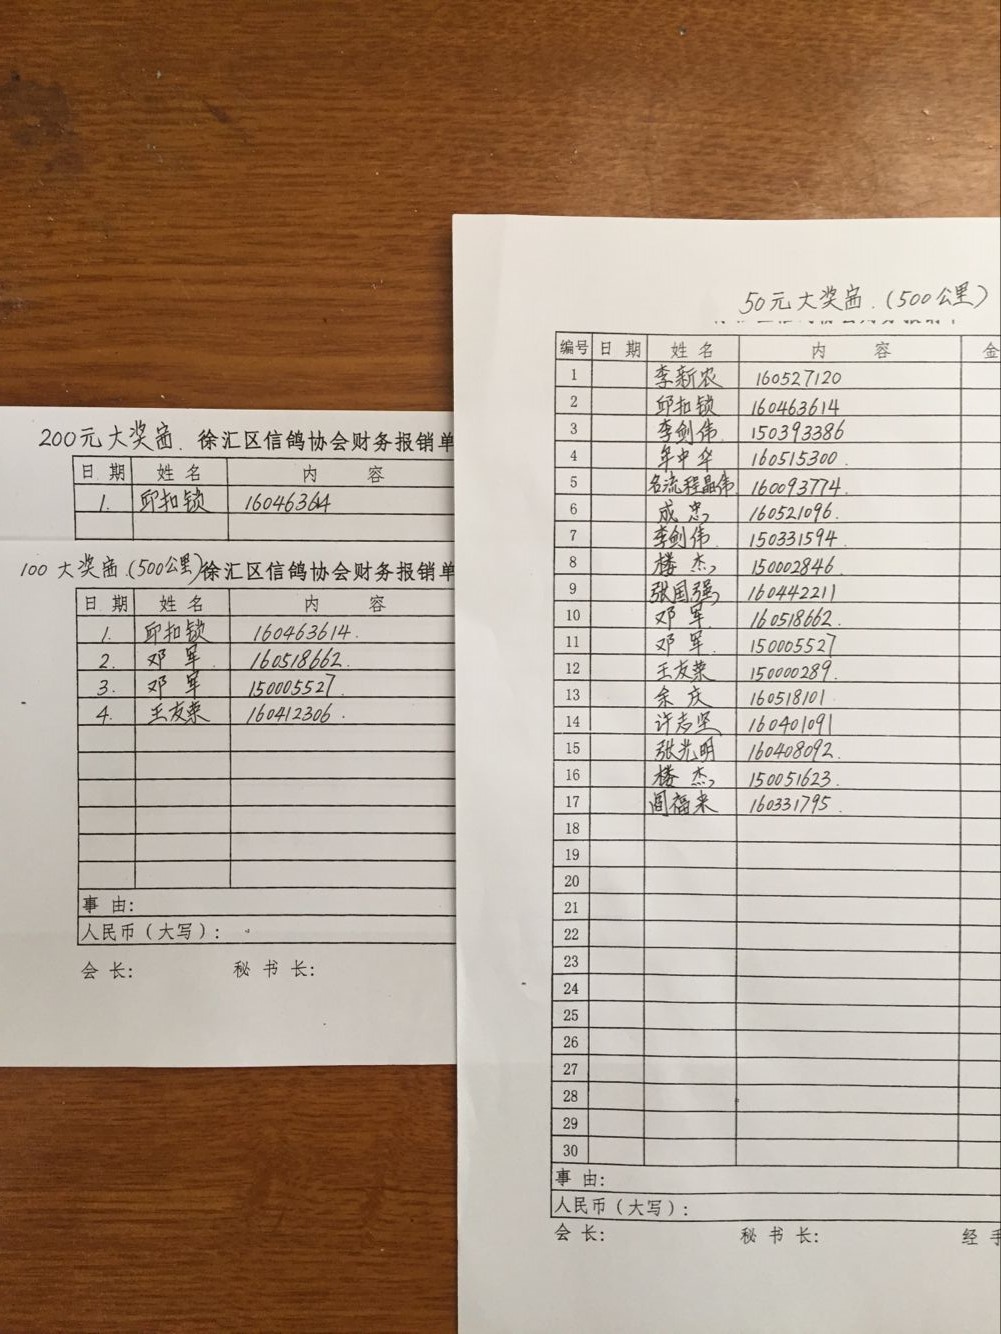 200元大奖窗. 徐汇区信鸽协会财务报销单
日 期 姓 名 内 容
1. 邱扣锁 16046364
100 大奖窗.(500公里) 徐汇区信鸽协会财务报销单
日 期 姓 名 内 容
1. 邱扣锁 160463614.
2. 邓 军 160518662.
3. 邓 军 150005527.
4. 王友荣 160412306.
事 由:
人民币(大写):
会 长: 秘 书 长:
50元大奖窗.(500公里)
编号 日 期 姓 名 内 容 金
1 李新农 160527120
2 邱扣锁 160463614
3 李剑伟 150393386
4 牟中华 160515300.
5 名流程晶伟 160093774.
6 成忠 160521096.
7 李剑伟 150331594.
8 楼 杰 150002846.
9 张国强 160442211
10 邓 军 160518662.
11 邓 军. 150005527
12 王友荣 150000289.
13 余 庆 160518101
14 许志坚 160401091
15 张光明 160408092.
16 楼 杰 150051623.
17 阎福来 160331795.
18
19
20
21
22
23
24
25
26
27
28
29
30
事 由:
人民币(大写):
会 长: 秘 书 长: 经 手